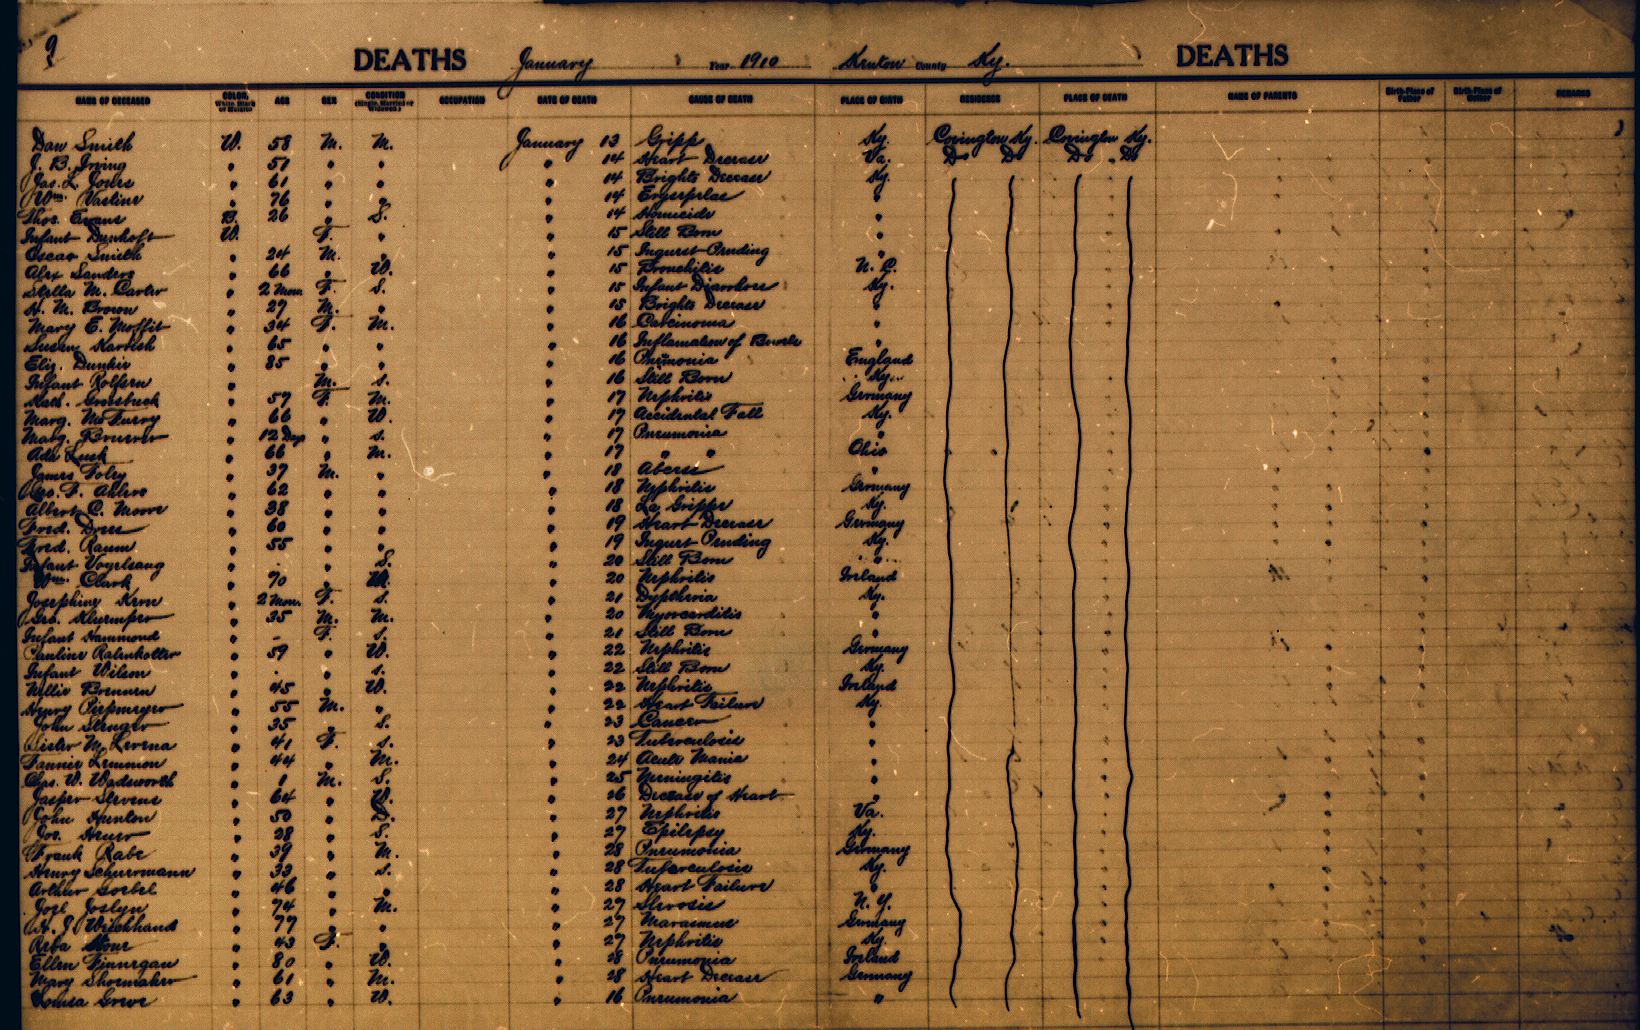 9
DEATHS January Year 1910 Kenton County Ky. DEATHS
NAME OF DECEASED COLOR, White, Black or Mulatto AGE SEX CONDITION (Single, Married or Widowed) OCCUPATION DATE OF DEATH CAUSE OF DEATH PLACE OF BIRTH RESIDENCE PLACE OF DEATH NAME OF PARENTS Birth-Place of Father Birth-Place of Mother REMARKS
Dan Smith W. 58 M. M. January 13 Gripp Ky. Covington Ky. Covington Ky.
J. B. Irving " 51 " " " 14 Heart Decease Va. Do Do Do Do
Jas. L. Jones " 61 " " " 14 Brights Decease Ky.
Wm. Vastine " 76 " " " 14 Erysiplas "
Thos. Evans B. 26 " S. " 14 Homicide "
Infant Dunhoft W. F. " " 15 Still Born "
Oscar Smith " 24 M. " " 15 Inquest Pending "
Alex Sanders " 66 " W. " 15 Bronchitis N. C.
Stella M. Carter " 2 Mon. F. S. " 15 Infant Diarrhoee Ky.
H. M. Brown " 27 M. " " 15 Brights Decease "
Mary E. Moffit " 34 F. M. " 16 Carcinoma "
Susan " 65 " " " 16 Inflamation of Bowels "
Eliz. Dunkir " 85 " " " 16 Pneumonia England
Infant Rolfsen " M. S. " 16 Still Born Ky.
Kath. Groesbuck " 57 F. M. " 17 Nephritis Germany
Marg. " 66 " W. " 17 Accidental Fall Ky.
Marg. " 12 Days " S. " 17 Pneumonia "
Ada Lusk " 66 " M. " 17 " " Ohio
James Foley " 37 M. " " 18 Abcess "
Geo. F. Ahlers " 62 " " " 18 Nephritis Germany
Albert C. Moore " 38 " " " 18 La Grippe Ky.
Fred. Dress " 60 " " " 19 Heart Decease Germany
Fred. Raum " 55 " " " 19 Inquest Pending Ky.
Infant Vogelsang " " S. " 20 Still Born "
Wm. Clark " 70 " W. " 20 Nephritis Ireland
Josephine Kern " 2 Mon. F. S. " 21 Dyptheria Ky.
Geo. Kluemper " 35 M. M. " 20 Myocarditis "
Infant Hammond " - F. S. " 21 Still Born "
Pauline Ralenkotter " 59 " W. " 22 Nephritis Germany
Infant Wilson " " S. " 22 Still Born Ky.
Nellie Brennen " 45 " W. " 22 Nephritis Ireland
Henry Piepmeyer " 55 M. " " 22 Heart Failure Ky.
John Stenger " 35 " S. " 23 Cancer "
Sister M. " 41 F. S. " 23 Tuberculosis "
Fannie Lemmon " 44 " M. " 24 Acute Mania "
Chas. W. Wadsworth " 1 M. S. " 25 Meningitis "
Jasper Stevens " 64 " W. " 26 Decease of Heart "
John Hunton " 50 " D. " 27 Nephritis Va.
Jos. " 28 " S. " 27 Epilepsy Ky.
Frank Rabe " 39 " M. " 28 Pneumonia Germany
Henry Schurrmann " 33 " S. " 28 Tuberculosis Ky.
Arthur Goebel " 46 " " " 28 Heart Failure "
Joel Joslyn " 74 " M. " 27 N. Y.
H. J. Wiechhand " 77 " " " 27 Marasmus Germany
Reba " 43 F. " " 27 Nephritis Ky.
Ellen Finnegan " 80 " W. " 28 Pneumonia Ireland
Mary Shoemaker " 61 " M. " 28 Heart Decease Germany
Louisa Greve " 63 " W. " 16 Pneumonia "